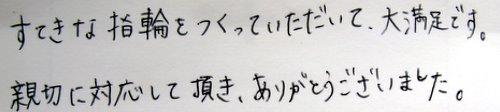 すてきな指輪をつくっていただいて、大満足です。
親切に対応して頂き、ありがとうございました。